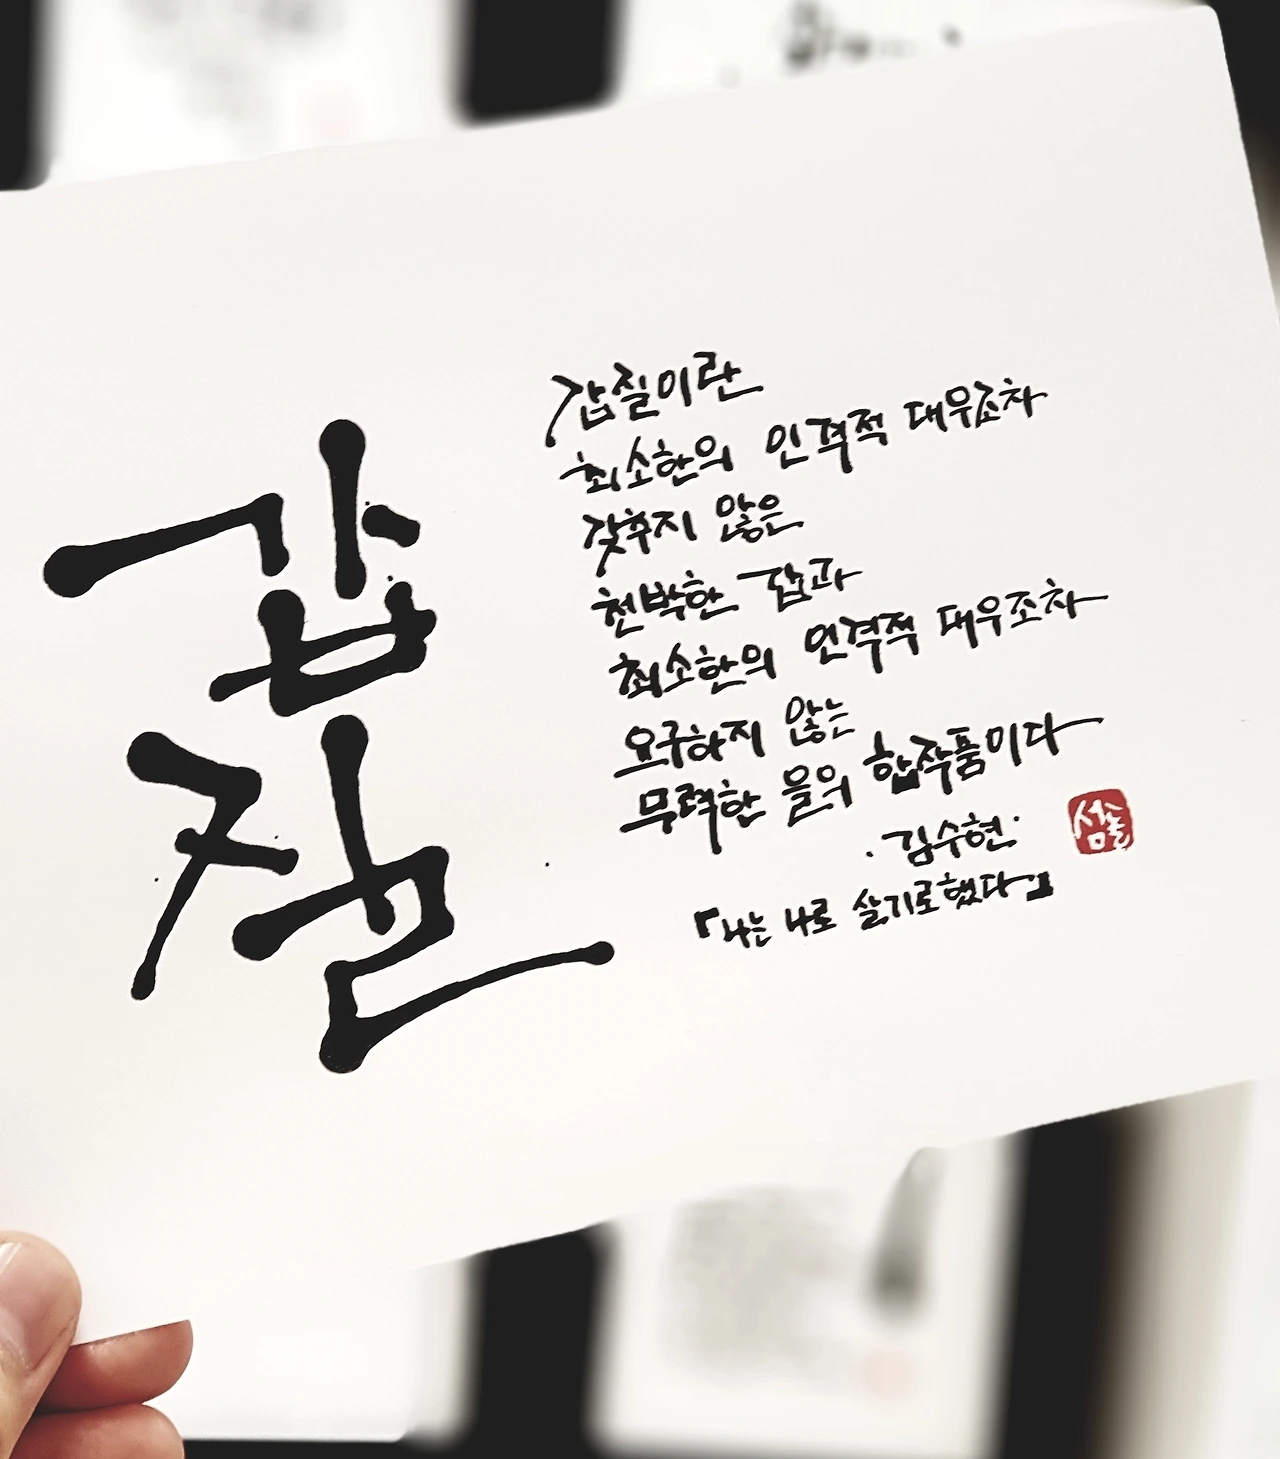 갑질
갑질이란
최소한의 인격적 대우조차
갖추지 않은
천박한 갑과
최소한의 인격적 대우조차
요구하지 않는
무력한 을의 합작품이다
· 김수현 ·
『나는 나로 살기로 했다』